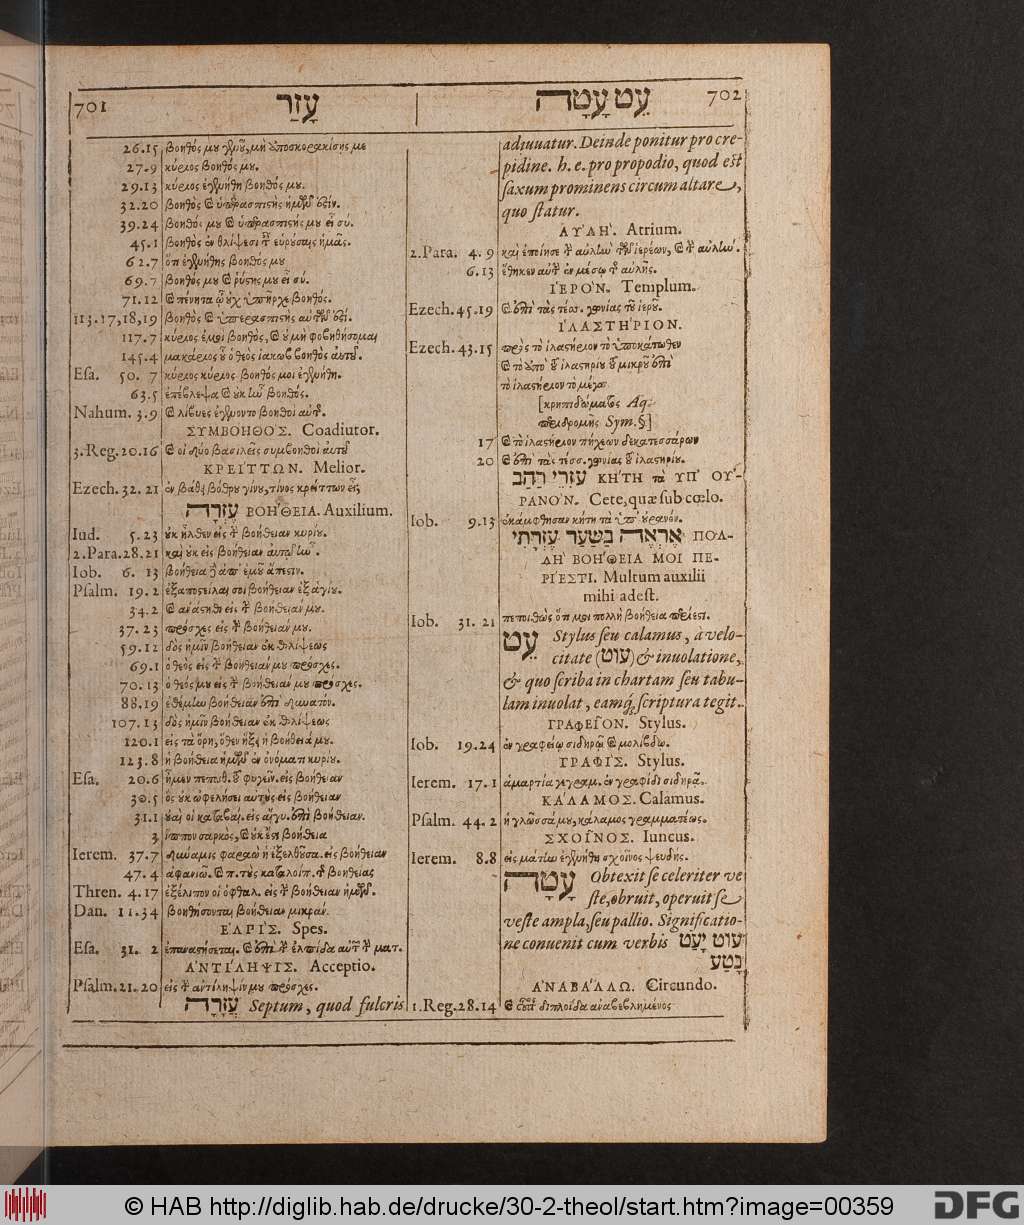 701
עָזַר
עֵט עָטָה
702
26.15 βοηθός μου γενοῦ, μὴ ὑποσκορακίσῃς με
27.9 κύριος βοηθός μου.
29.13 κύριος ἐγενήθη βοηθός μου.
32.20 βοηθὸς καὶ ὑπερασπιστὴς ἡμῶν ἐστίν.
39.24 βοηθός μου καὶ ὑπερασπιστής μου εἶ σύ.
45.1 βοηθὸς ἐν θλίψεσι ταῖς εὑρούσαις ἡμᾶς.
62.7 ὅτι ἐγενήθης βοηθός μου
69.7 βοηθός μου καὶ ῥύστης μου εἶ σύ.
71.12 καὶ πένητα ᾧ οὐχ ὑπῆρχε βοηθός.
113.17,18,19 βοηθὸς καὶ ὑπερασπιστὴς αὐτῶν ἐστι.
117.7 κύριος ἐμοὶ βοηθὸς, καὶ οὐ μὴ φοβηθήσομαι
145.4 μακάριος οὗ ὁ θεὸς ἰακὼβ βοηθὸς αὐτοῦ.
Esa. 50. 7 κύριος κύριος βοηθός μοι ἐγενήθη.
63.5 ἐπέβλεψα καὶ οὐκ ἦν βοηθός.
Nahum. 3.9 καὶ λίβυες ἐγένοντο βοηθοὶ αὐτῆς.
ΣΥΜΒΟΗΘΌΣ. Coadiutor.
3.Reg.20.16 καὶ οἱ δύο βασιλεῖς συμβοηθοὶ αὐτοῦ
ΚΡΕΊΤΤΩΝ. Melior.
Ezech. 32. 21 ἐν βάθει βόθρου γίνου, τίνος κρείττων εἶ;
עֶזְרָה ΒΟΉΘΕΙΑ. Auxilium.
Iud. 5.23 οὐκ ἦλθεν εἰς τὴν βοήθειαν κυρίου.
2.Para.28.21 καὶ οὐκ εἰς βοήθειαν αὐτοῦ ἦν.
Iob. 6. 13 βοήθεια δὲ ἀπ' ἐμοῦ ἄπεστιν.
Psalm. 19. 2 ἐξαποστείλαι σοι βοήθειαν ἐξ ἁγίου.
34.2 καὶ ἀνάστηθι εἰς τὴν βοήθειάν μου.
37.23 πρόσχες εἰς τὴν βοήθειάν μου.
59.12 δὸς ἡμῖν βοήθειαν ἐκ θλίψεως
69.1 ὁ θεὸς εἰς τὴν βοήθειάν μου πρόσχες.
70.13 ὁ θεός μου εἰς τὴν βοήθειάν μου πρόσχες.
88.19 ἐθέμην βοήθειαν ἐπὶ δυνατόν.
107.13 δὸς ἡμῖν βοήθειαν ἐκ θλίψεως
120.1 εἰς τὰ ὄρη, ὅθεν ἥξει ἡ βοήθειά μου.
123.8 ἡ βοήθεια ἡμῶν ἐν ὀνόματι κυρίου.
Esa. 20.6 ἦμεν πεποιθ. τοῦ φυγεῖν. εἰς βοήθειαν
30.5 ὃς οὐκ ὠφελήσει αὐτοὺς εἰς βοήθειαν
31.1 οὐαὶ οἱ καταβαί. εἰς αἴγυ. ἐπὶ βοήθειαν.
3 ἵππων σάρκας, καὶ οὐκ ἔστι βοήθεια
Ierem. 37.7 δύναμις φαραὼ ἡ ἐξελθοῦσα. εἰς βοήθειαν
47. 4 ἀφανιῶ. καὶ π. τοὺς καταλοίπ. τῆς βοηθείας
Thren. 4.17 ἐξέλιπον οἱ ὀφθαλ. εἰς τὴν βοήθειαν ἡμῶν.
Dan. 11.34 βοηθήσονται βοήθειαν μικράν.
ἘΛΡΊΣ. Spes.
Esa. 31. 2 ἐπαναστήσεται. καὶ ἐπὶ τὴν ἐλπίδα αὐτῶν τὴν ματ.
ἈΝΤΊΛΗΨΙΣ. Acceptio.
Psalm.21.20 εἰς τὴν ἀντίληψίν μου πρόσχες.
עֲזָרָה Septum, quod fulcris
adiuuatur. Deinde ponitur pro cre-
pidine. h. e. pro propodio, quod est
saxum prominens circum altare,
quo statur.
ΑΥΛΉ. Atrium.
2.Para. 4.9 καὶ ἐποίησε τὴν αὐλὴν τῶν ἱερέων, καὶ τὴν αὐλήν.
6.13 ἔθηκεν αὐτὴν ἐν μέσῳ τῆς αὐλῆς.
ἹΕΡΌΝ. Templum.
Ezech.45.19 καὶ ἐπὶ τὰς τέσσ. γωνίας τοῦ ἱεροῦ.
ἹΛΑΣΤΉΡΙΟΝ.
Ezech.43.15 πρὸς τὸ ἱλαστήριον τὸ ὑποκάτωθεν
καὶ τὸ ὑπὸ τοῦ ἱλαστηρίου τοῦ μικροῦ ἐπὶ
τὸ ἱλαστήριον τὸ μέγα.
[κρηπιδώματος Aq.
περιδρομῆς Sym.§]
17 καὶ τὸ ἱλαστήριον πήχεων δεκατεσσάρων
20 καὶ ἐπὶ τὰς τέσσ. γωνίας τοῦ ἱλαστηρίου.
עֹזְרֵי רַהַב ΚΉΤΗ τὰ ΥΠ' ΟΥ-
ΡΑΝΌΝ. Cete, quæ sub cœlo.
Iob. 9.13 ἐκάμφθησαν κήτη τὰ ὑπ' οὐρανόν.
אֶרְאֶה בַשַּׁעַר עֶזְרָתִי ΠΟΛ-
ΛΗ ΒΟΉΘΕΙΑ ΜΟΙ ΠΕ-
ΡΊΕΣΤΙ. Multum auxilii
mihi adest.
Iob. 31. 21 πεποιθὼς ὅτι μοι πολλὴ βοήθεια περίεστι.
עֵט Stylus seu calamus, à velo-
citate (עוּט) & inuolatione,
& quo scriba in chartam seu tabu-
lam inuolat, eamq́; scriptura tegit.
ΓΡΑΦΕΙ͂ΟΝ. Stylus.
Iob. 19.24 ἐν γραφείῳ σιδηρῷ καὶ μολίβδῳ.
ΓΡΑΦΊΣ. Stylus.
Ierem. 17.1 ἁμαρτία γεγραμ. ἐν γραφίδι σιδηρᾷ.
ΚΆΛΑΜΟΣ. Calamus.
Psalm. 44. 2 ἡ γλῶσσά μου, κάλαμος γραμματέως.
ΣΧΟΙ͂ΝΟΣ. Iuncus.
Ierem. 8.8 εἰς μάτην ἐγενήθη σχοῖνος ψευδής.
עָטָה Obtexit se celeriter ve
ste, obruit, operuit se
veste ampla, seu pallio. Significatio-
ne conuenit cum verbis עוּט יָעַט
נָטַע
ἈΝΑΒΆΛΛΩ. Circundo.
1.Reg.28.14 καὶ οὗτος διπλοΐδα ἀναβεβλημένος
© HAB http://diglib.hab.de/drucke/30-2-theol/start.htm?image=00359
DFG